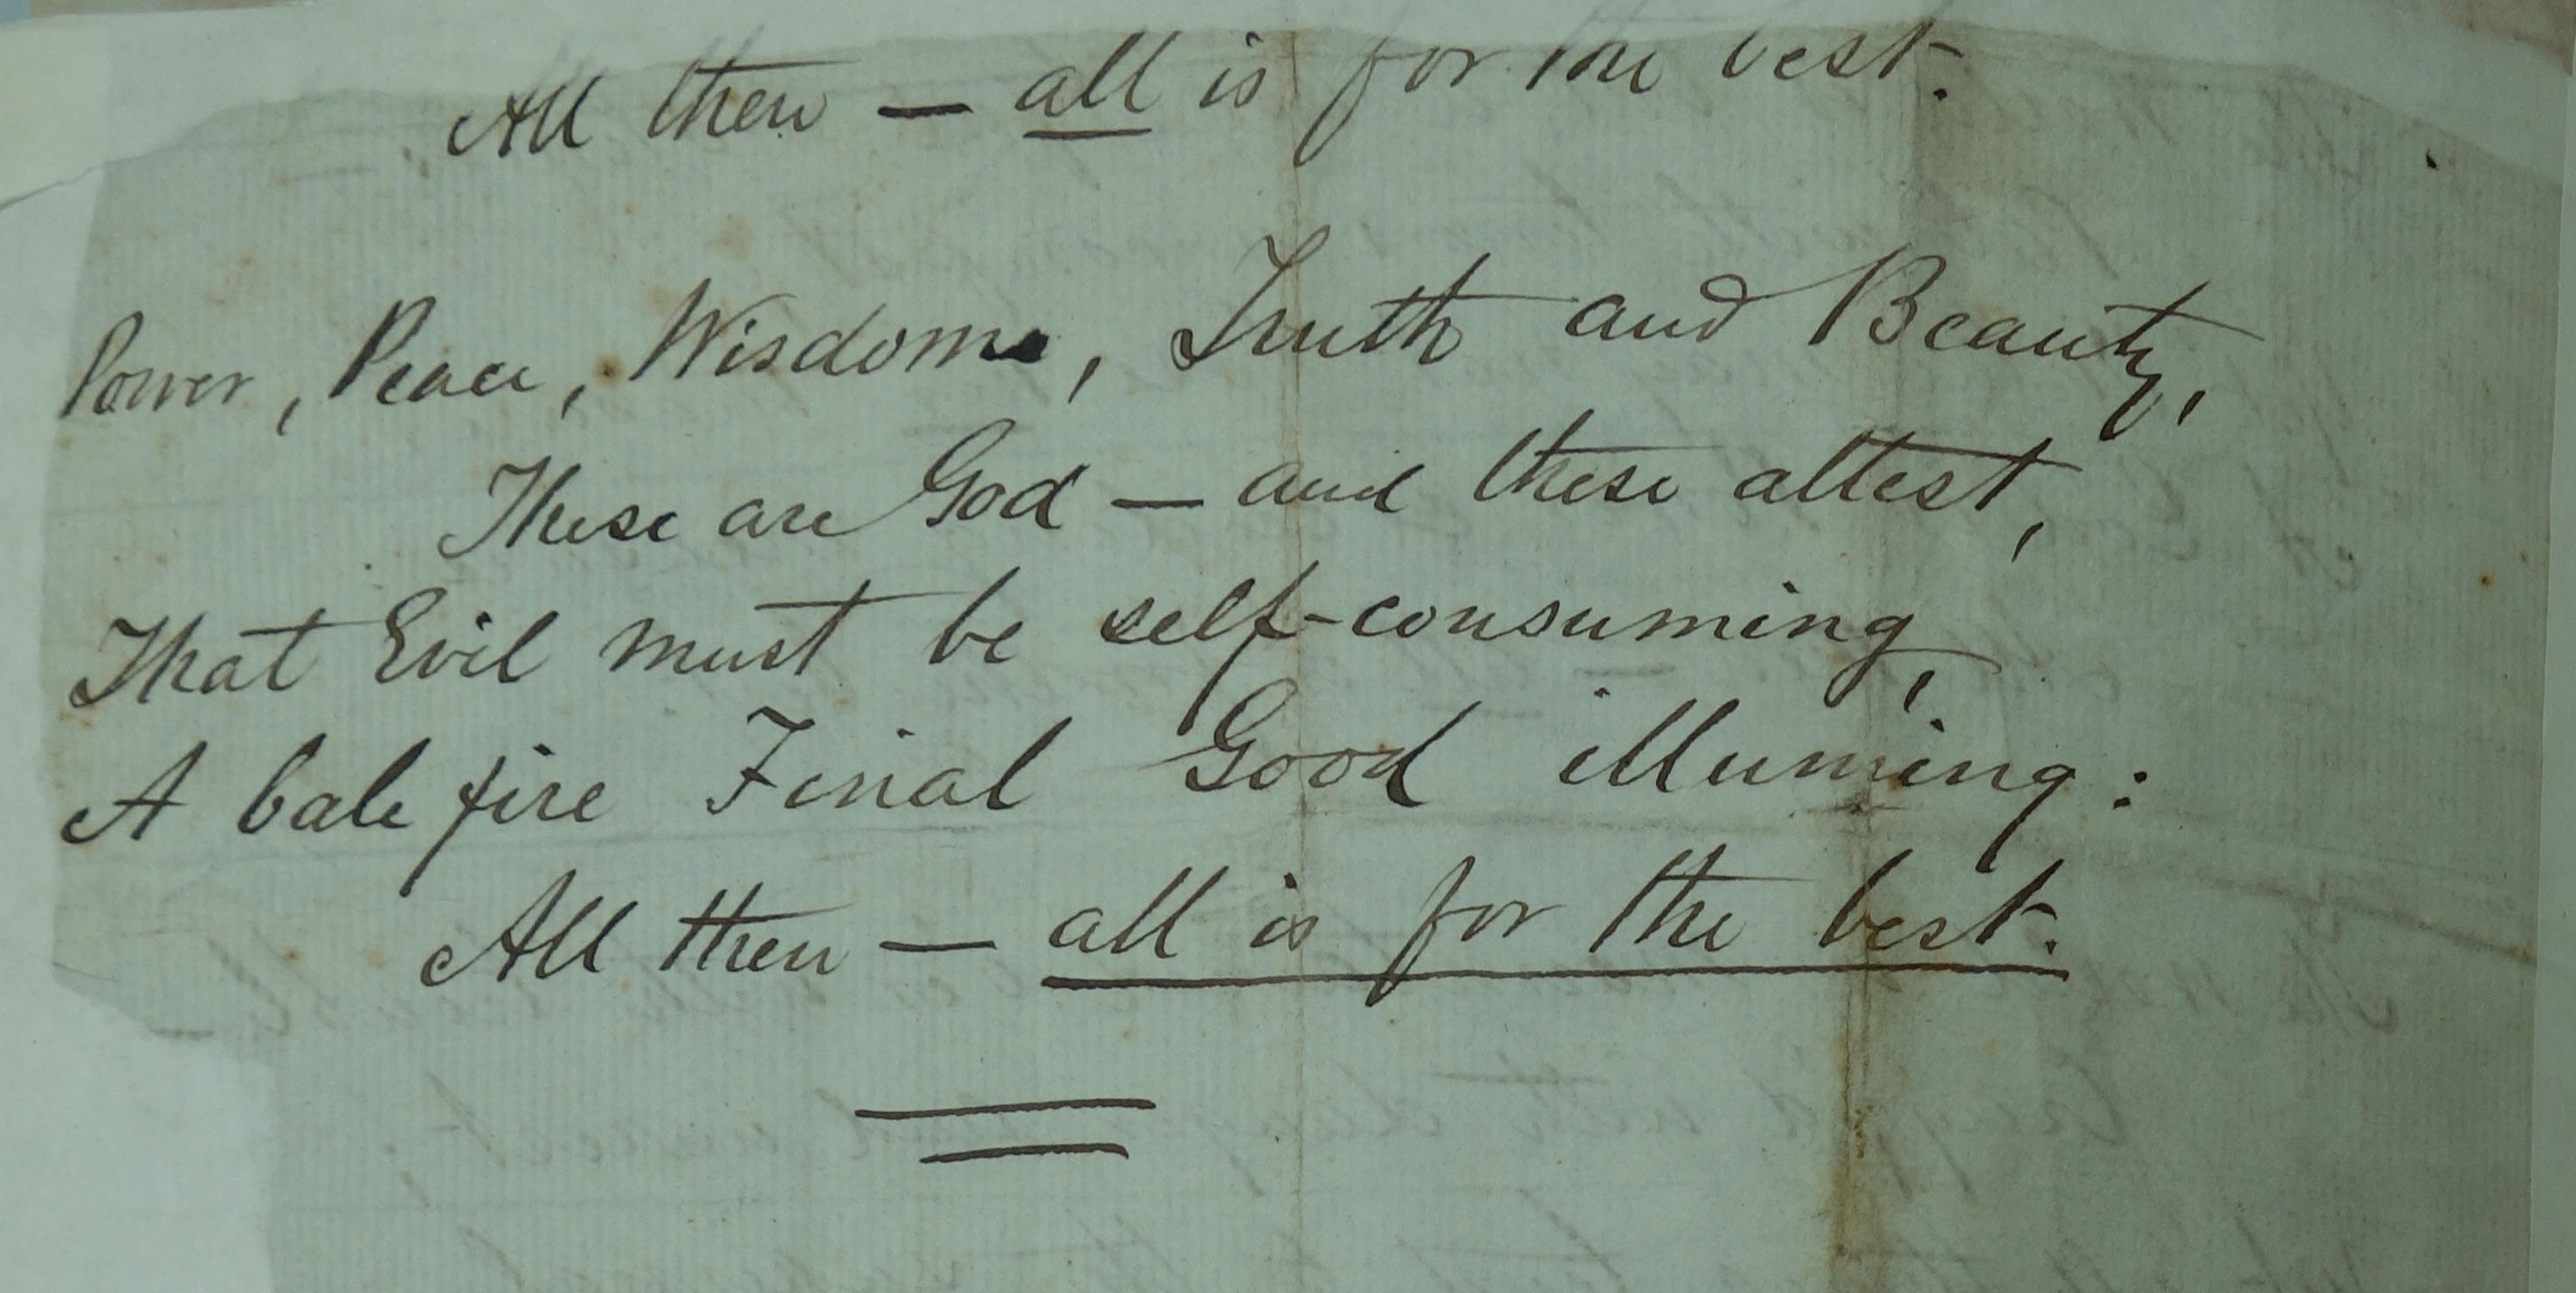 All then — all is for the best.
Power, Peace, Wisdom, Truth and Beauty,
These are God — and these attest,
That Evil must be self-consuming,
A bale fire Final Good illuming:
All then — all is for the best.